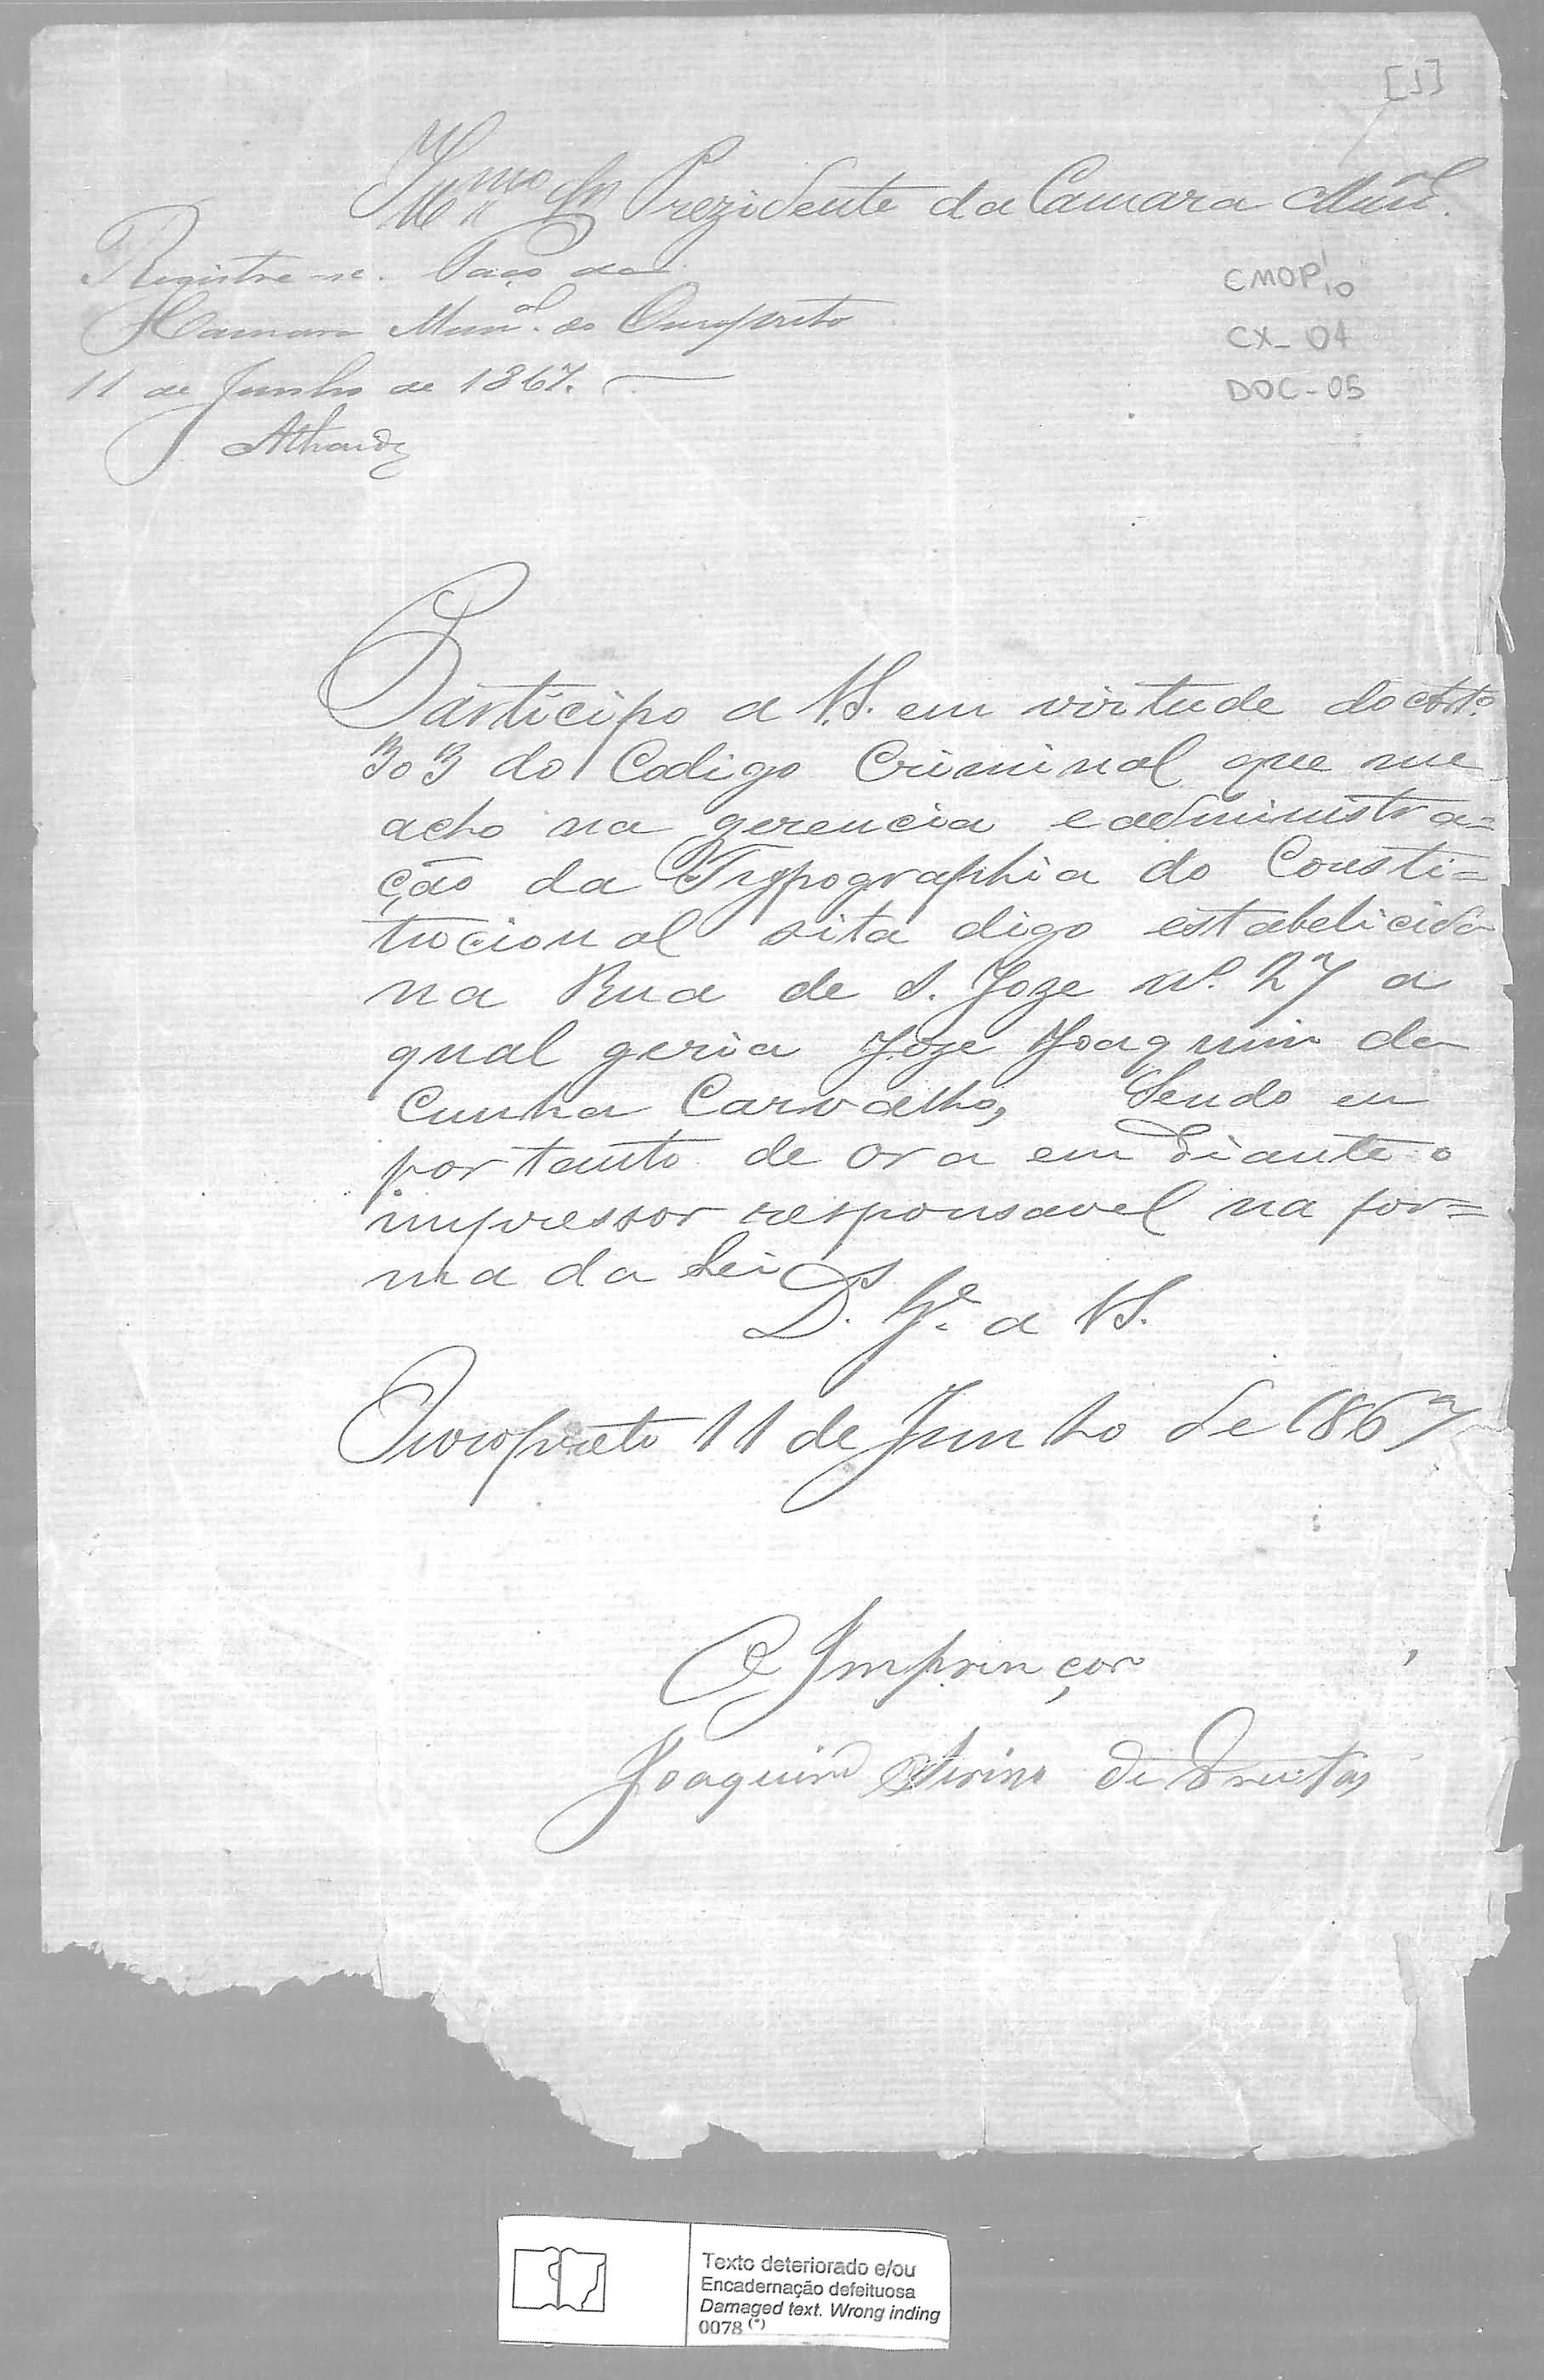 [1]
Illmo Sr Prezidente da Camara Munal.
Registre-se. Paço da
Camara Munal. do Ouropreto
11 de Junho de 1867.
CMOP 10
CX_04
DOC-05
Participo a V.S. em virtude do Arto.
303 do Codigo Criminal que me
acho na gerencia e administra=
ção da Typographia do Consti=
tucional sita digo estabelicida
na Rua de S. Joze No. 27 a
qual geria Joze Joaquim da
Cunha Carvalho, Sendo eu
por tanto de ora em diante o
impressor responsavel na for=
ma da Lei
Ds. Ge. a VS.
Ouropreto 11 de Junho de 1867
O Imprinçor
Joaquim de Freitas
Texto deteriorado e/ou
Encadernação defeituosa
Damaged text. Wrong inding
0078 (*)